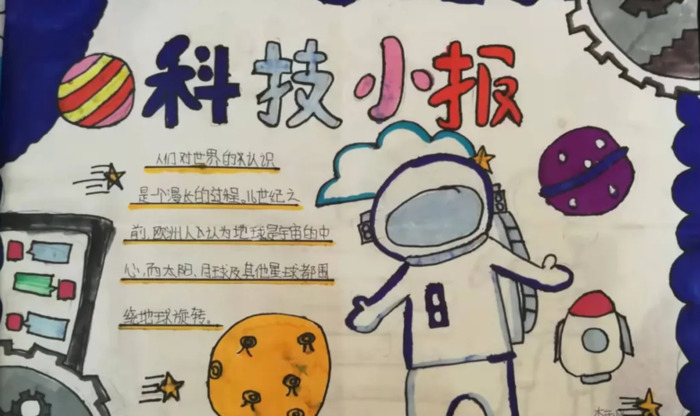 科技小报
人们对世界的认识
是个漫长的过程。16世纪之
前,欧洲人认为地球是宇宙的中
心,而太阳、月球及其他星球都围
绕地球旋转。